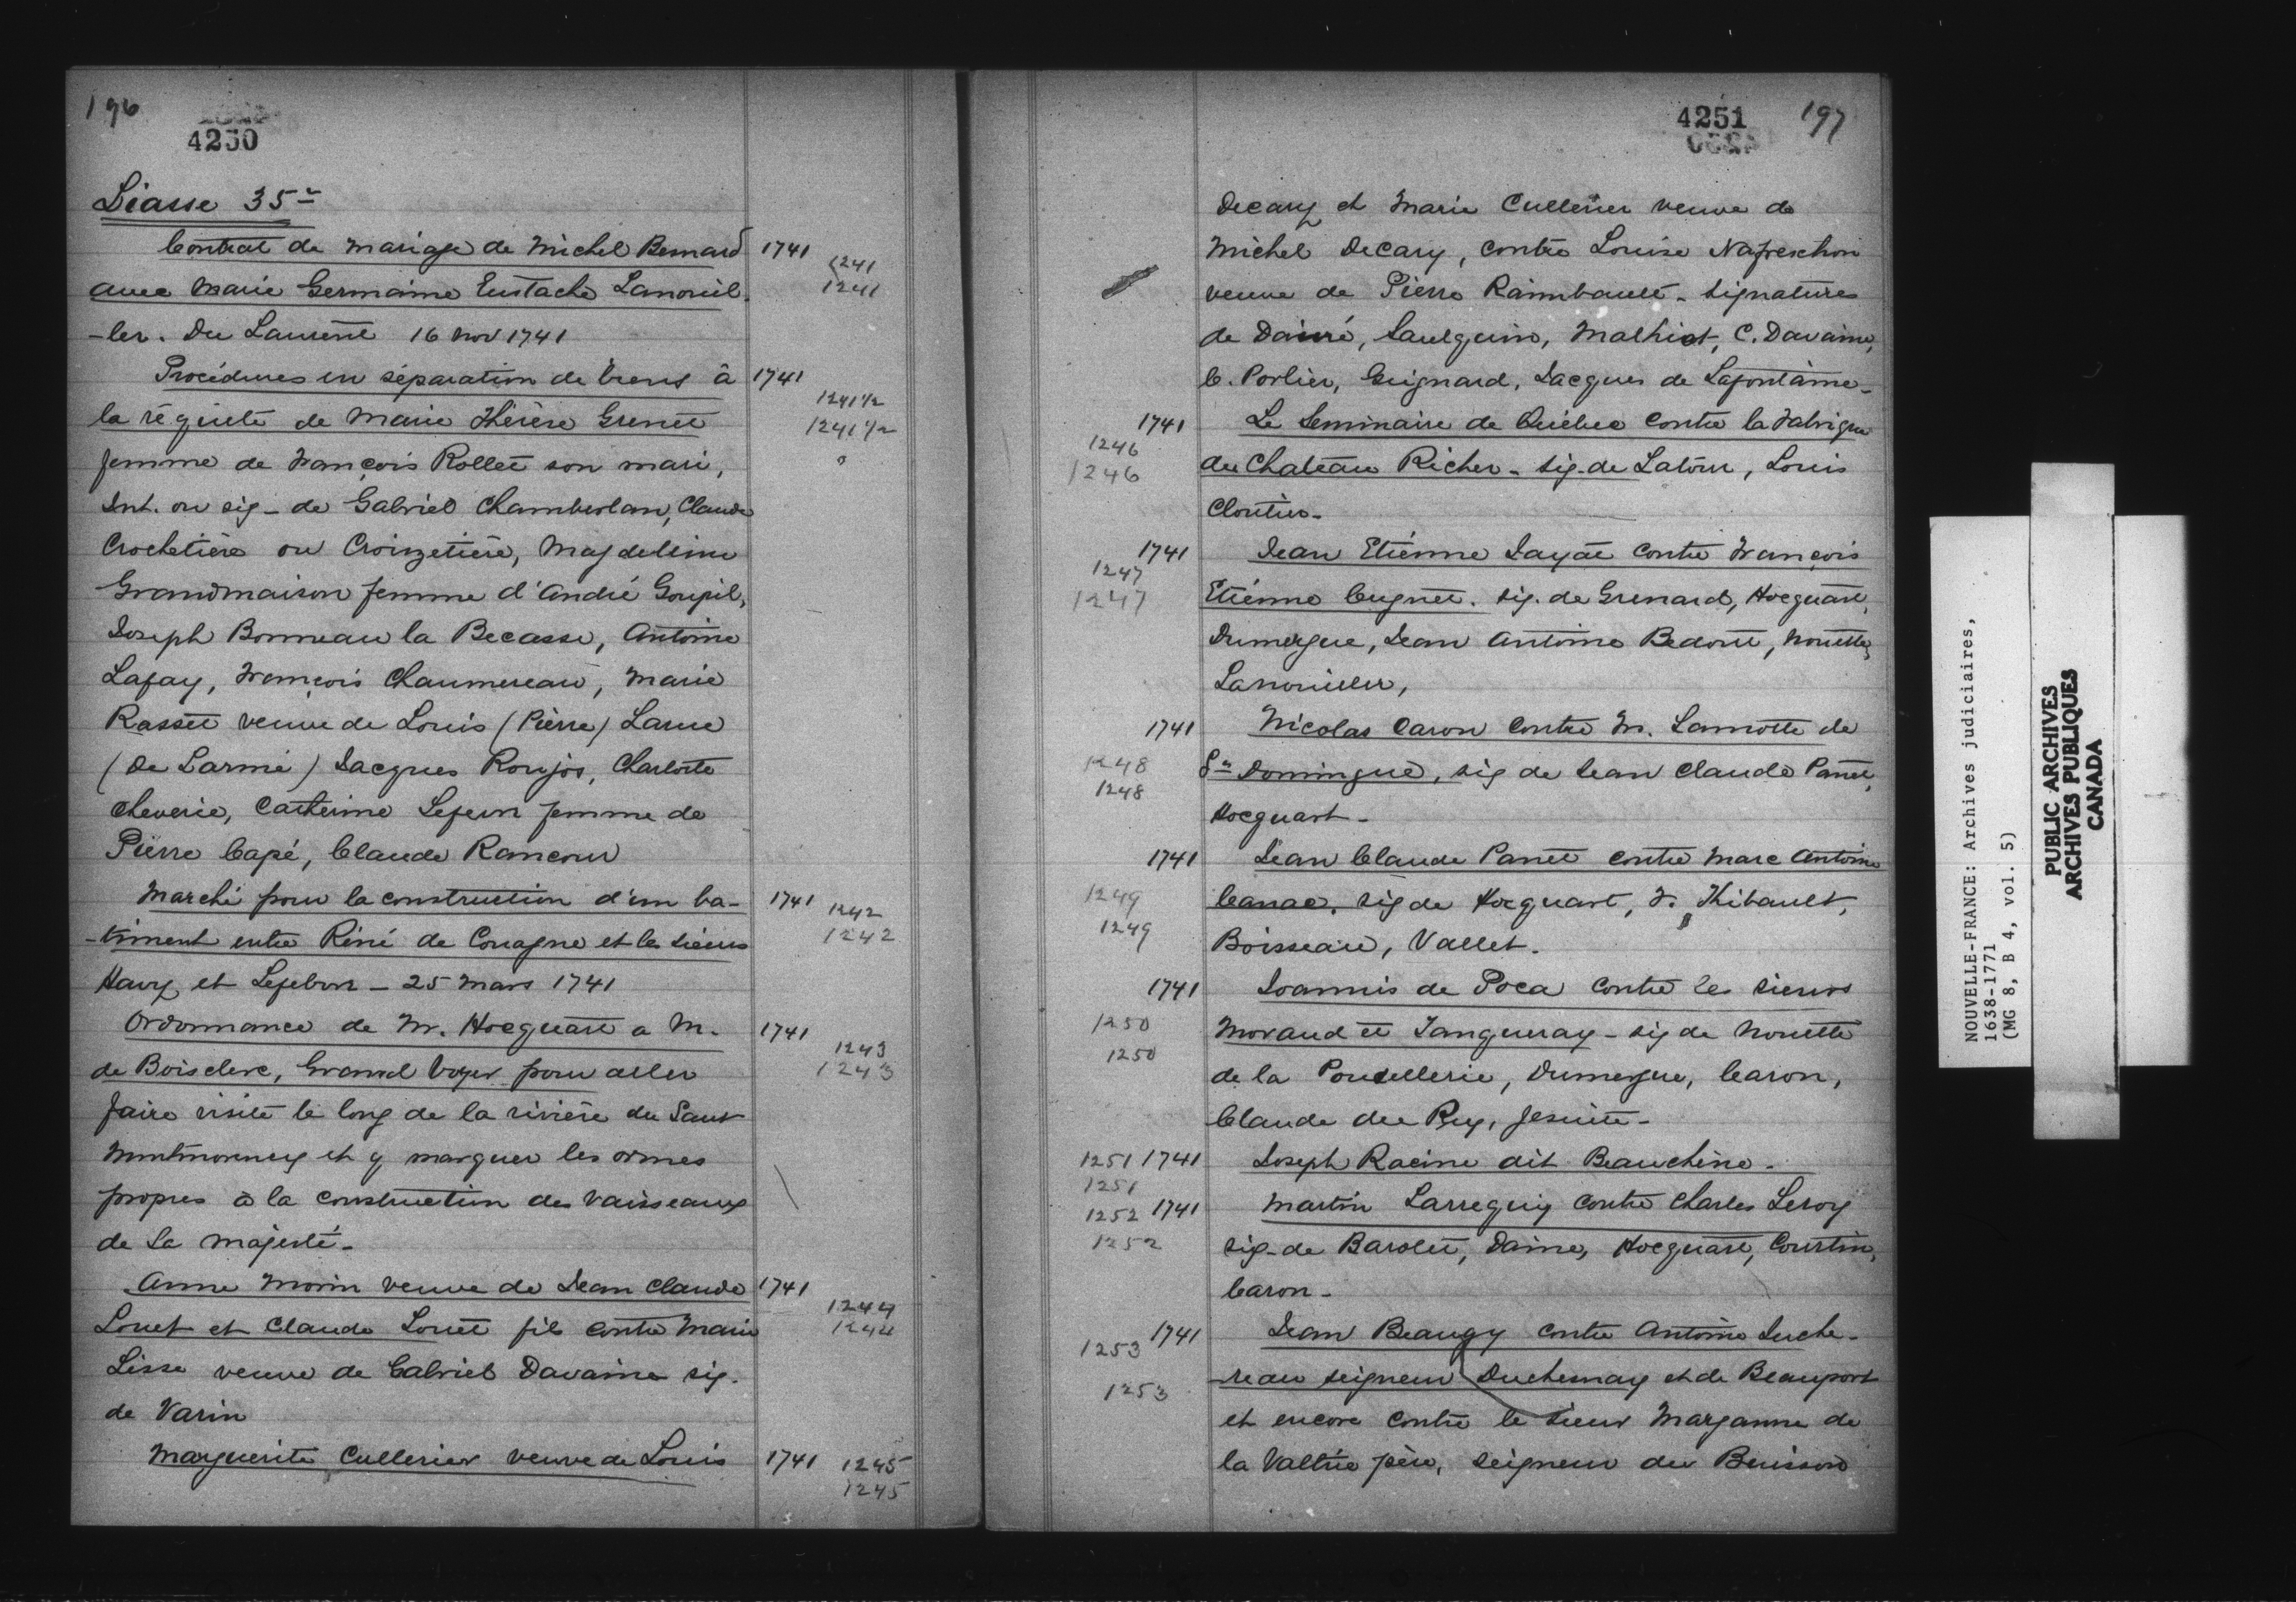 196
4250
Liasse 35e
Contrat de mariage de Michel Bernard 1741
1241
avec Marie Germaine Eustache Lanouil- 1241
-ler. Du Laurent 16 nov 1741
Procédures en séparation de biens à 1741
1241 1/2
la réquête de Marie Thérèse Grenet 1241 1/2
femme de François Rollet son mari,
Int. ou sig- de Gabriel Chamberlan, Claude
Crochetière ou Croizetière, Magdeleine
Grandmaison femme d'André Goupil,
Joseph Bonneau la Becasse, Antoine
Lafay, François Chaumereau, Marie
Rasset veuve de Louis (Pierre) Larue
(De Larmé) Jacques Roujos, Charlotte
Cheverie, Catherine Lefeuv femme de
Pierre Capé, Claude Rancour
Marché pour la construction d'un ba- 1741 1242
-timent entre Réné de Couagne et les sieurs 1242
Havy et Lefebvre - 25 Mars 1741
Ordonnance de Mr. Hocquart a M. 1741
1243
de Boisclerc, Grand Voyer pour aller 1243
faire visite le long de la rivière du Saut
Montmorency et y marquer les ormes
propres à la construction des vaisseaux
de Sa Majesté-
Anne Morin veuve de Jean Claude 1741
1244
Louet et Claude Louet fils contre Marie 1244
Lisse veuve de Gabriel Davaine sig.
de Varin
Marguerite Cullerier veuve de Louis 1741 1245
1245
4251 197
Decary et Marie Cullerier veuve de
Michel Decary, contre Louise Nafrechon
veuve de Pierre Raimbault - signatures
de Dainé, Saulquin, Malhiot, C. Davaine,
C. Porlier, Guignard, Jacques de Lafontaine-
1741 Le Seminaire de Québec contre la Fabrique
1246
1246 du Chateau Richer - sig. de Latour, Louis
Cloutier-
1741 Jean Etienne Jayat contre François
1247
1247 Etienne Cugnet. sig. de Grenard, Hocquart,
Dumergue, Jean Antoine Bedout, Nouette,
Lanouiller,
1741 Nicolas Caron contre M. Lamotte de
1248 St Domingue, sig de Jean Claude Panet,
1248
Hocquart-
1741 Jean Claude Panet contre Marc Antoine
1249 Canac. sig de Hocquart, F. Thibault,
1249
Boisseau, Vallet.
1741 Joannis de Poca contre les sieurs
1250 Moraud et Tanqueray - sig de Nouette
1250
de la Poudellerie, Dumergue, Caron,
Claude du Puy, Jesuite-
1251 1741 Joseph Racine dit Beauchêne-
1251
1252 1741 Martin Larreguy contre Charles Leroy
1252 sig- de Barolet, Daine, Hocquart, Courtin,
Caron-
1741 Jean Beaugy contre Antoine Juche-
1253
-reau seigneur Duchesnay et de Beauport
1253
et encore contre le sieur Marganne de
la Valtrie père, seigneur du Buisson
NOUVELLE-FRANCE: Archives judiciaires,
1638-1771
(MG 8, B 4, vol. 5)
PUBLIC ARCHIVES
ARCHIVES PUBLIQUES
CANADA